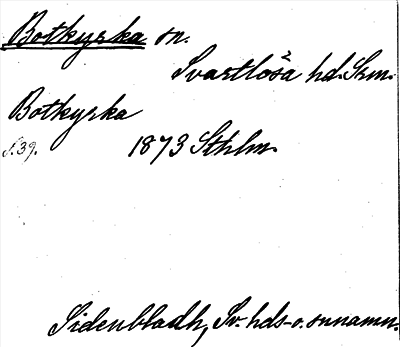 Botkyrka sn.
Svartlösa hd. Srm.
Botkyrka
s. 39. 1873 Sthlm.
Sidenbladh, Sv. hds- o. snnamn.